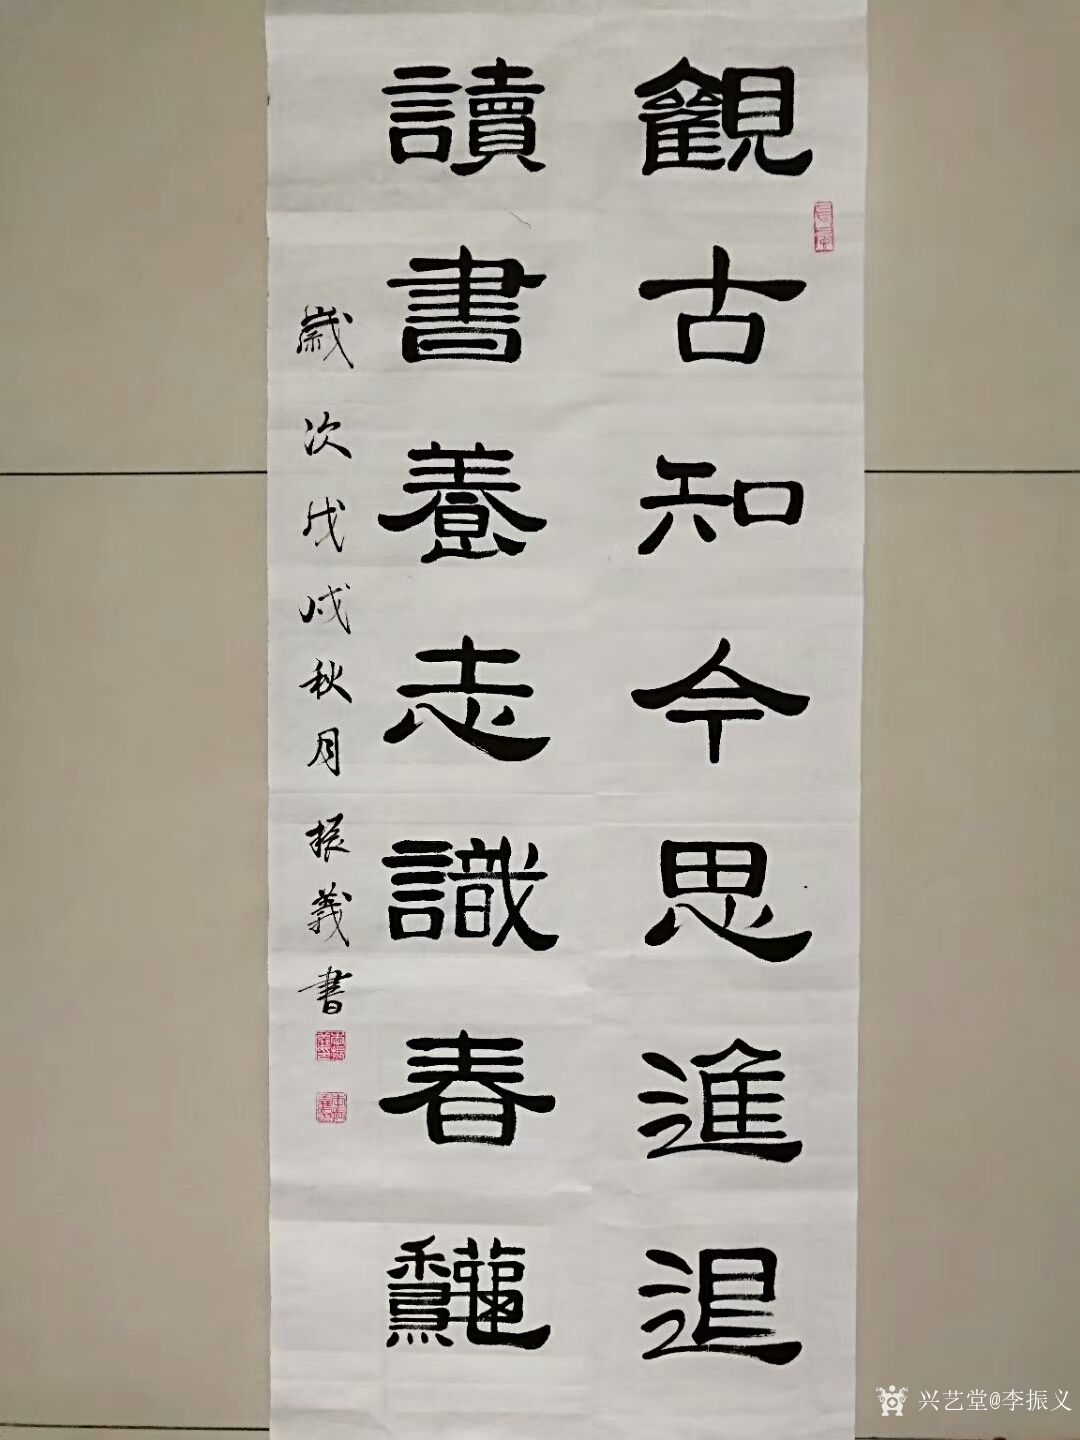 觀古知今思進退
讀書養志識春龝
歲次戊戌秋月振義書
兴艺堂@李振义